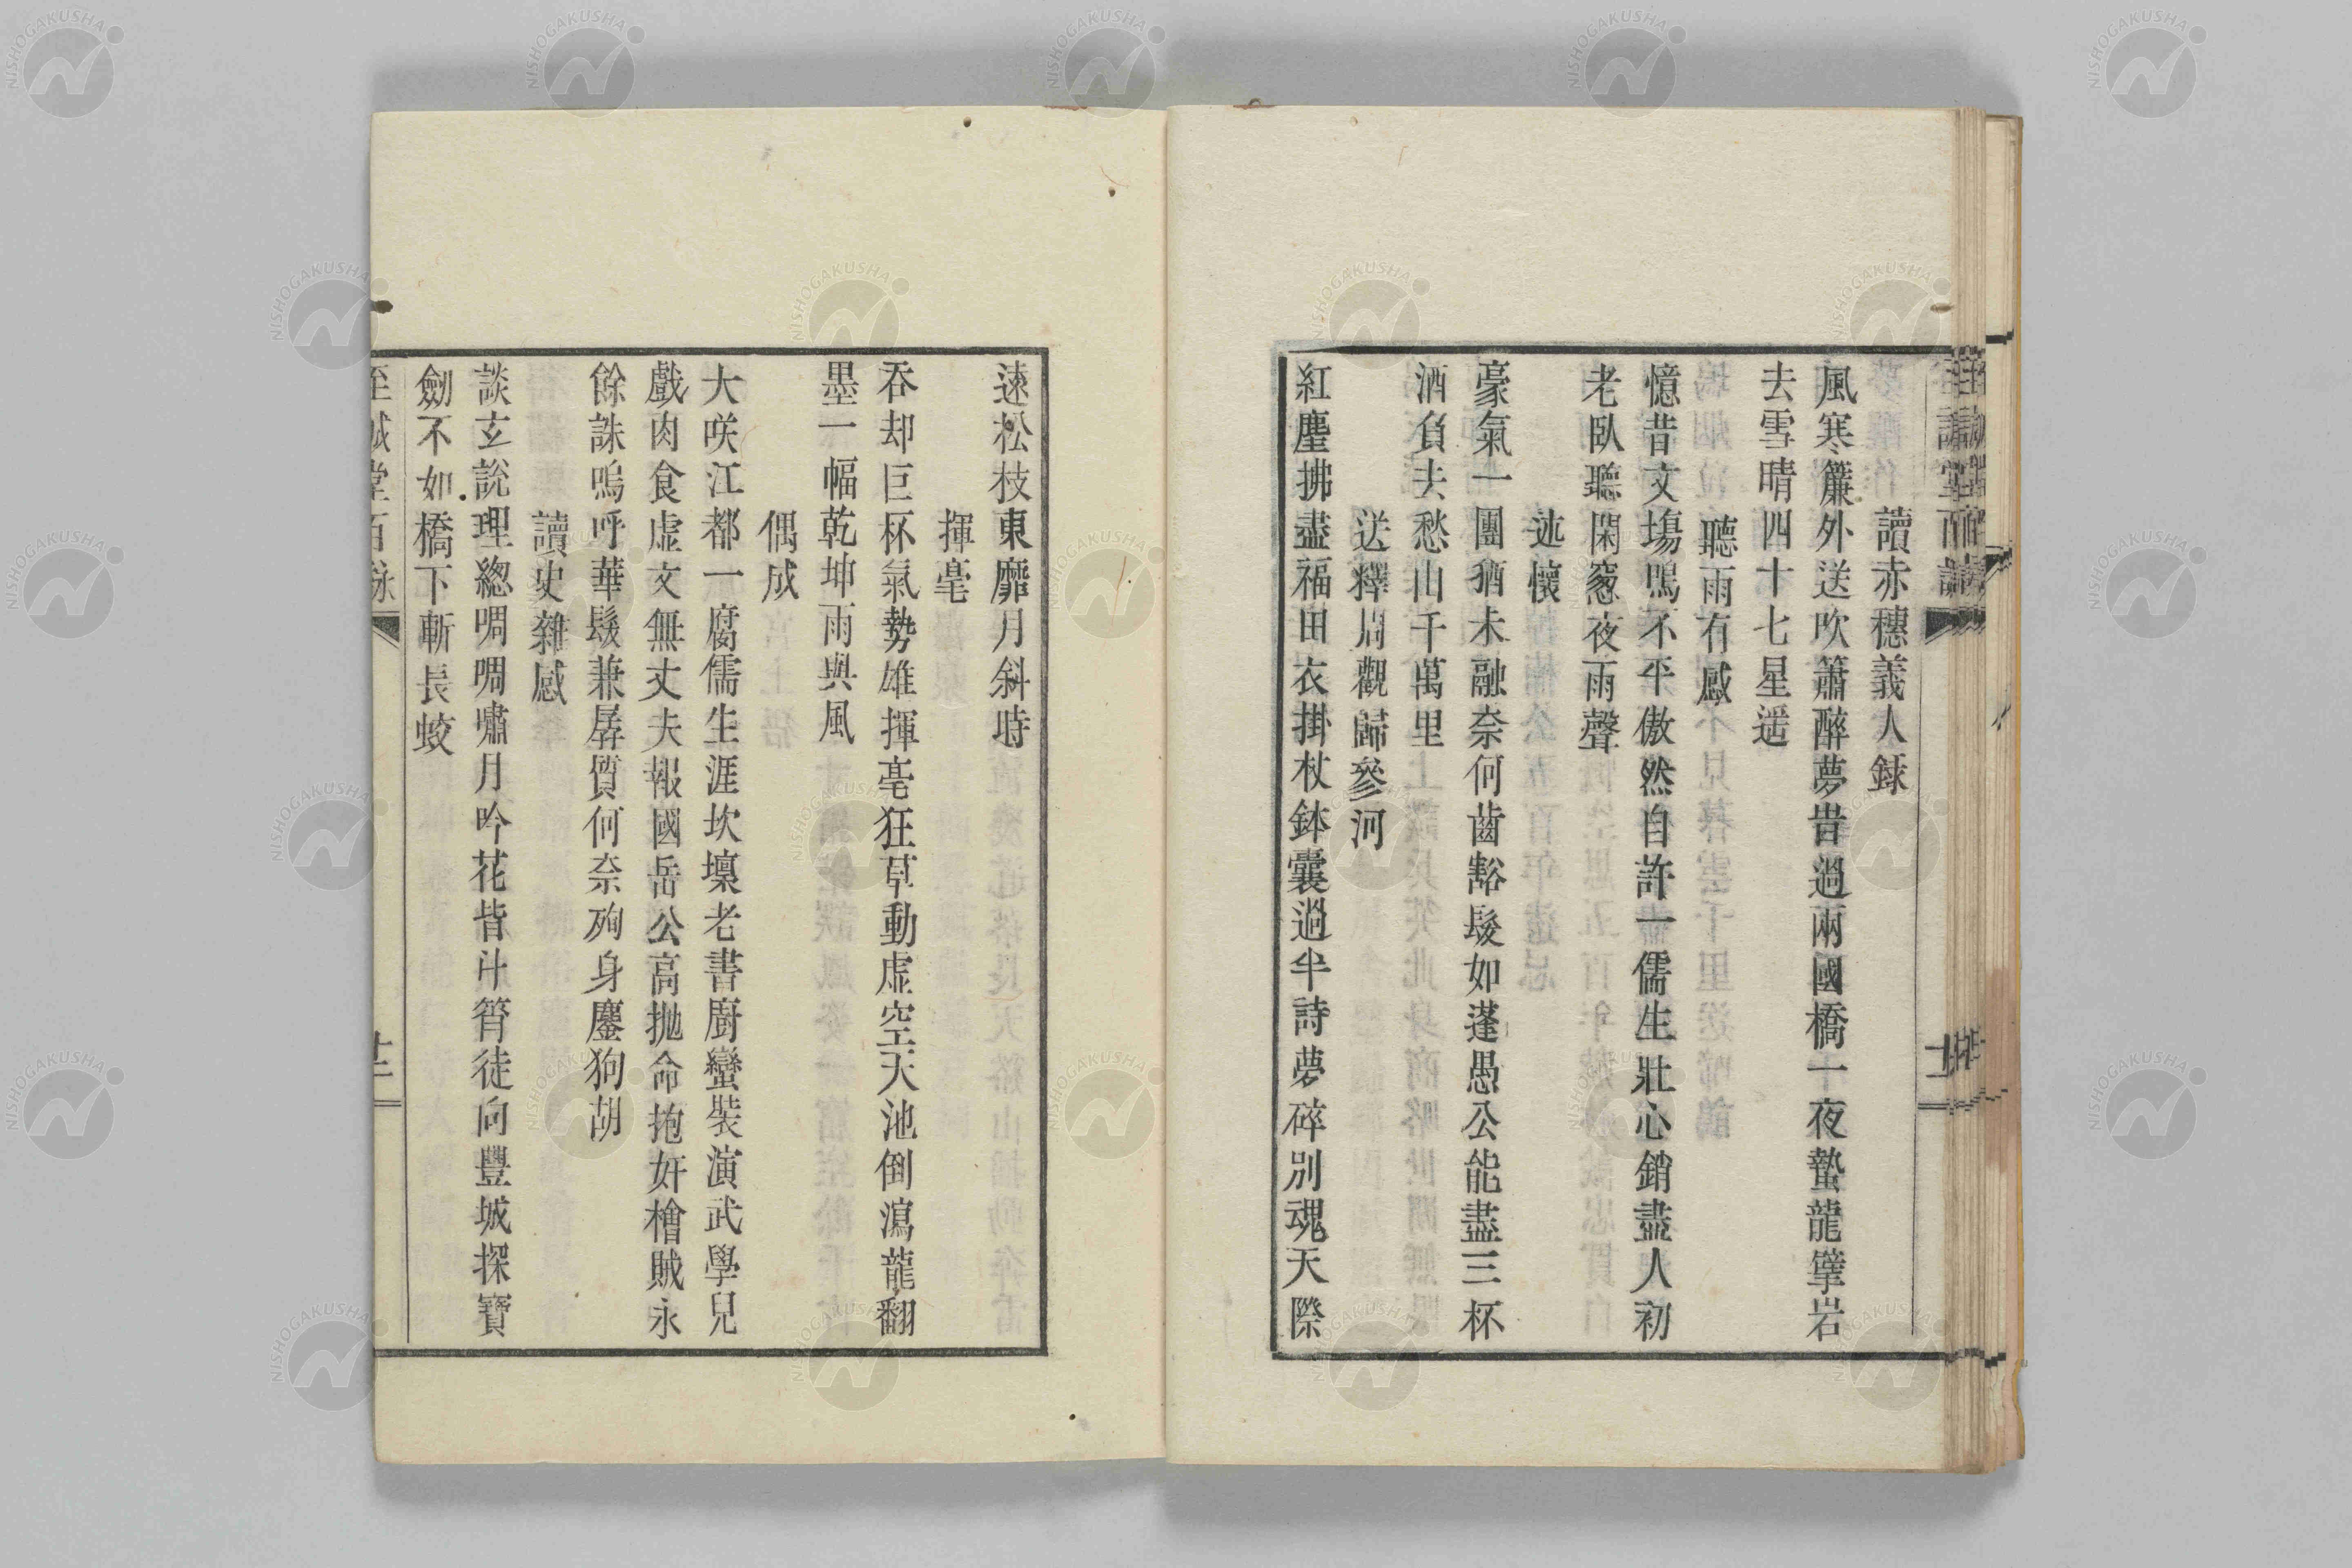 讀赤穗義人録
風寒簾外送吹簫醉夢昔過兩國橋一夜蟄龍擘岩
去雪晴四十七星遥
聽雨有感
憶昔文塲鳴不平傲然自許一儒生壯心銷盡人初
老臥聽閑窓夜雨聲
述懷
豪氣一團猶未融奈何齒豁髮如蓬愚公能盡三杯
酒負去愁山千萬里
送釋周觀歸參河
紅塵拂盡福田衣掛杖鉢囊過半詩夢碎別魂天際
遠松枝東靡月斜時
揮毫
吞却巨杯氣勢雄揮毫狂草動虚空天池倒瀉龍翻
墨一幅乾坤雨與風
偶成
大咲江都一腐儒生涯坎壈老書廚蠻裝演武學兒
戲肉食虚文無丈夫報國岳公高抛命抱奸檜賊永
餘誅嗚呼華髮兼孱質何奈殉身鏖狗胡
讀史雜感
談玄説理總啁啁嘯月吟花皆斗筲徒向豐城探寶
劒不如橋下斬長蛟
至誠堂百詠
十二
NISHOGAKUSHA